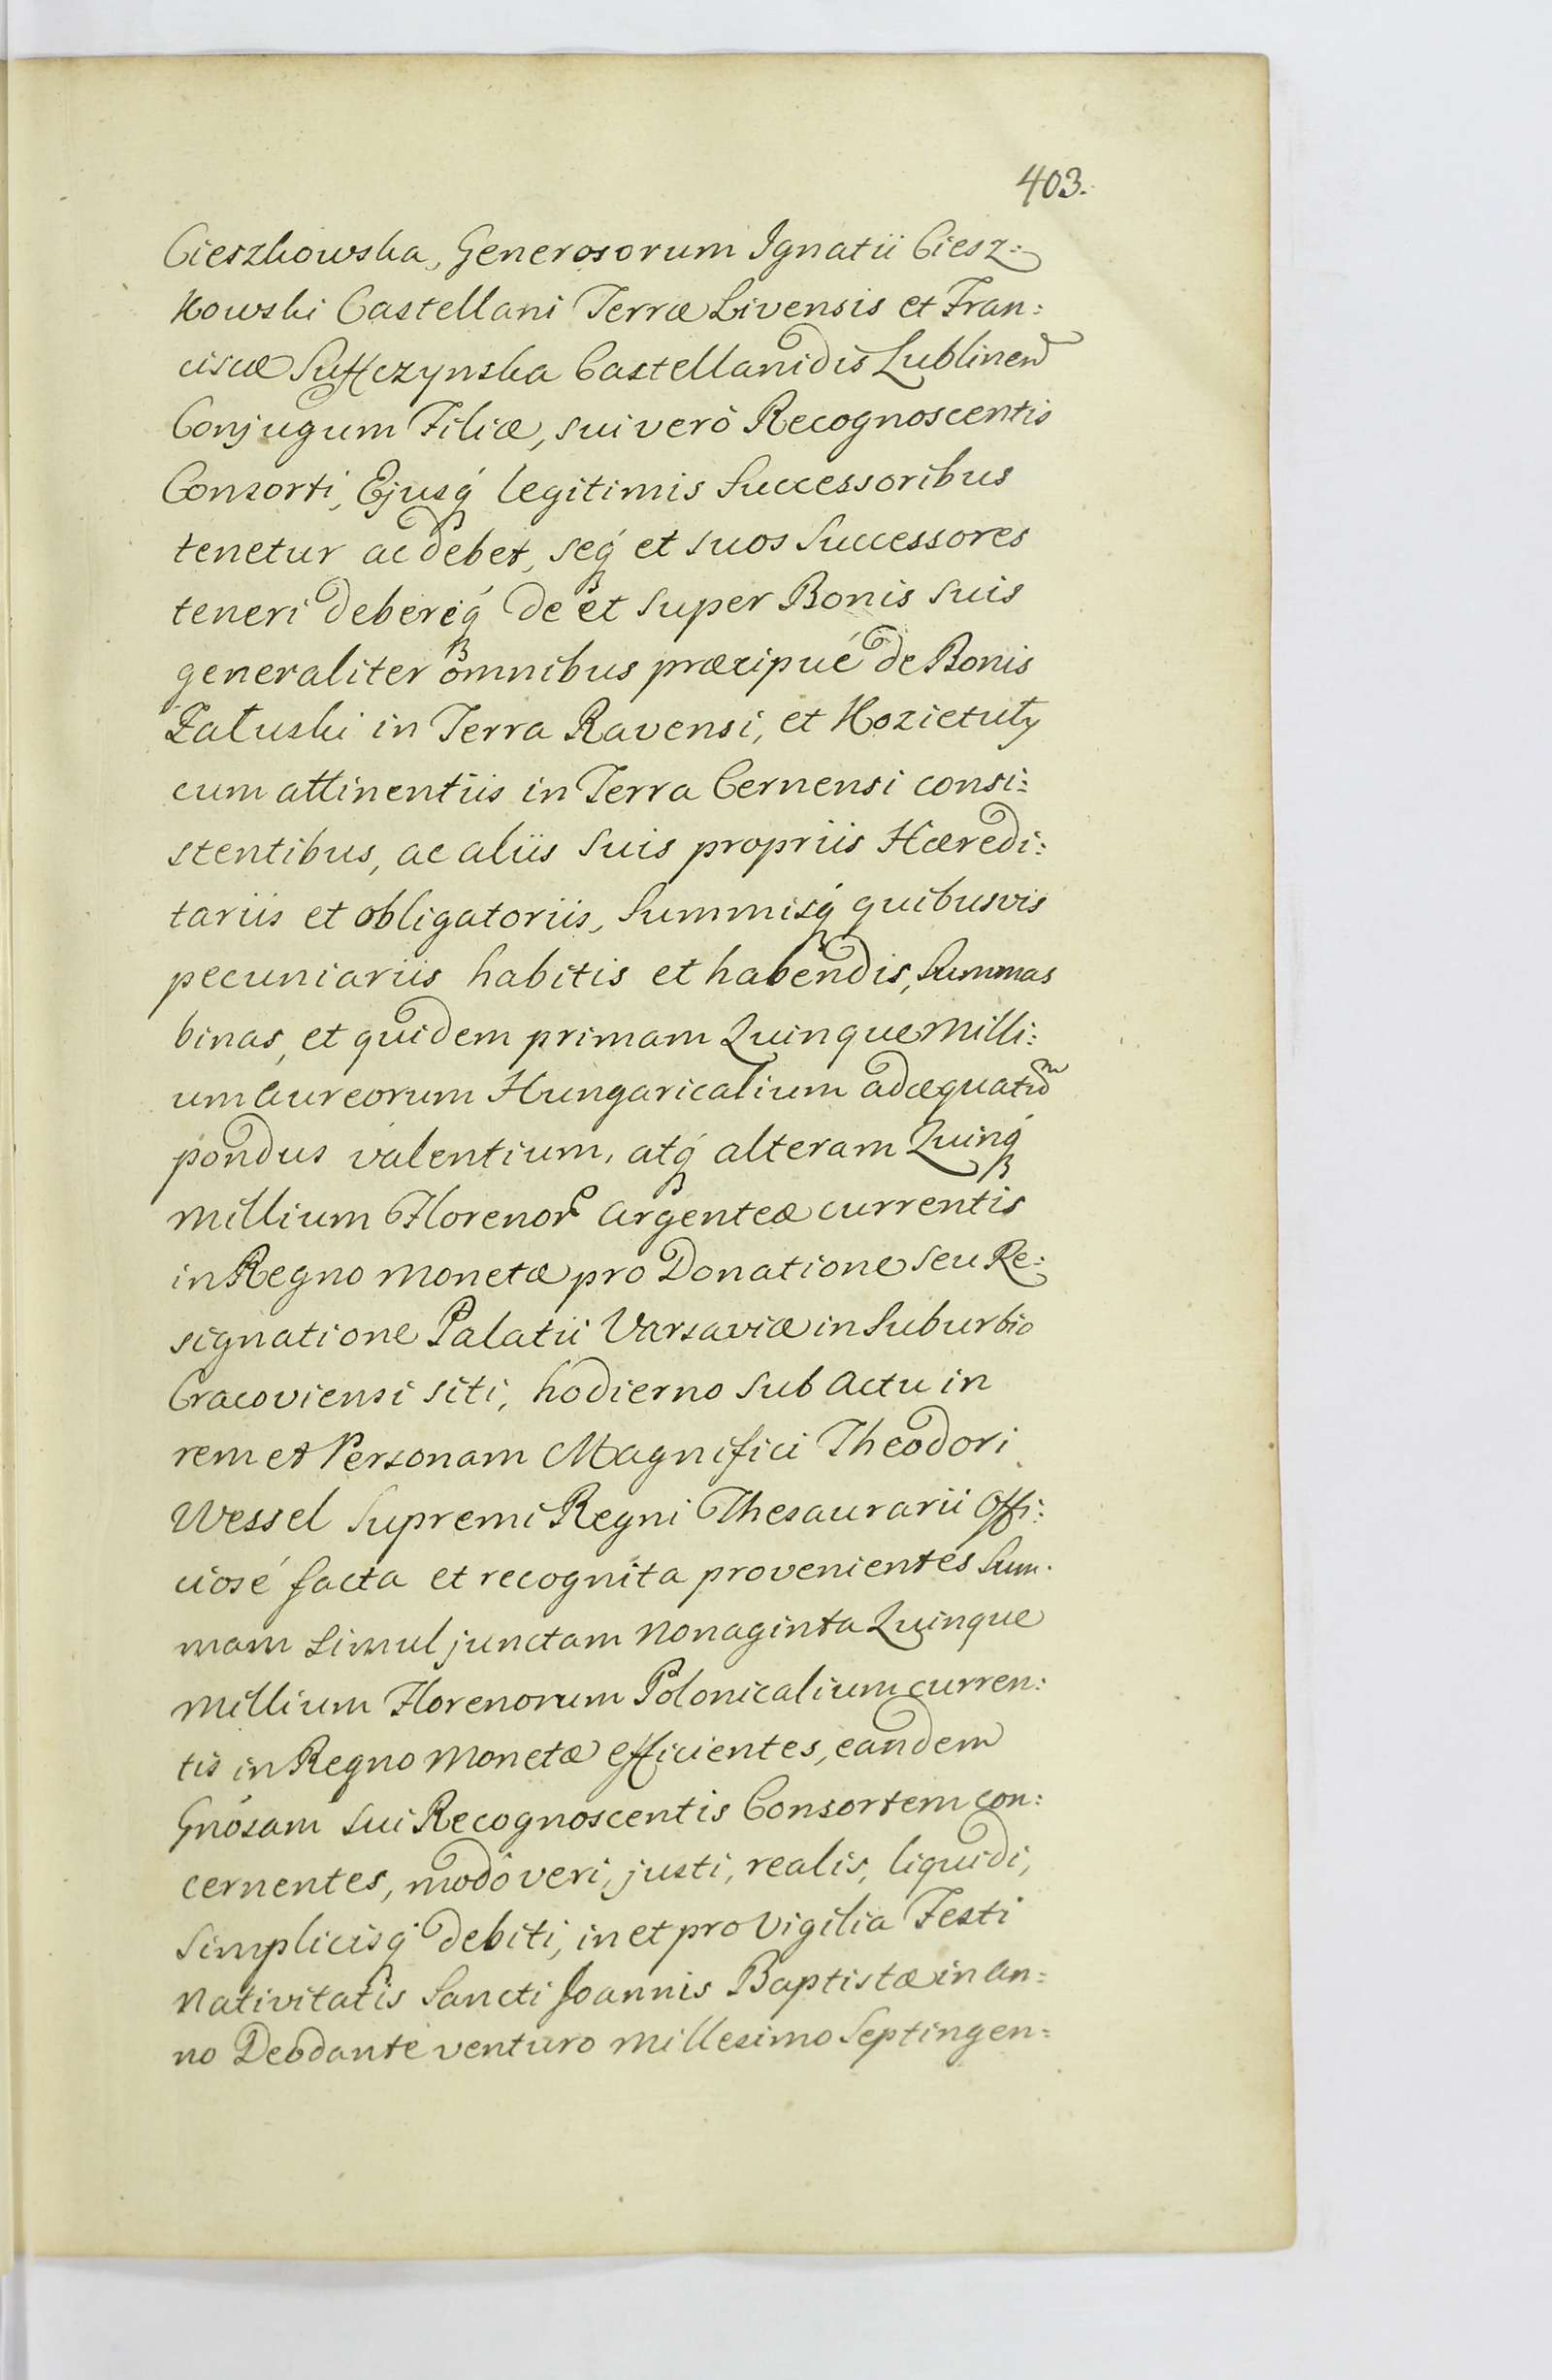 403.
Cieszkowska, Generosorum Ignatii Ciesz:
kowski Castellani Terræ Livensis et Fran:
ciscæ Suffczynska Castellanidis Lublinen
Conjugum Filiæ, sui verò Recognoscentis
Consorti, Ejusq́ legitimis Successoribus
tenetur ac debet, seq́ et suos Successores
teneri debereq́ de et super Bonis suis
generaliter omnibus præcipué de Bonis
Załuski in Terra Ravensi, et Kozietuły
cum attinentiis in Terra Cernensi consi:
stentibus, ac aliis suis propriis Hæredi:
tariis et obligatoriis, Summisq́ quibusvis
pecuniariis habitis et habendis, Summas
binas, et quidem primam Quinque Milli:
um Aureorum Hungaricalium adæquatum
pondus valentium, atq́ alteram Quinq́
Millium Florenor Argenteæ currentis
in Regno Monetæ pro Donatione seu Re:
signatione Palatii Varsaviæ in Suburbio
Cracoviensi siti, hodierno sub Actu in
rem et Personam Magnifici Theodori
Wessel Supremi Regni Thesaurarii Offi:
ciosé facta et recognita provenientes Sum:
mam simul junctam Nonaginta Quinque
Millium Florenorum Polonicalium curren:
tis in Regno Monetæ efficientes, eandem
Gnosam sui Recognoscentis Consortem con:
cernentes, modò veri, justi, realis, liquidi,
Simplicisq́ debiti, in et pro Vigilia Festi
Nativitatis Sancti Joannis Baptistæ in An:
no Deo dante venturo Millesimo Septingen: